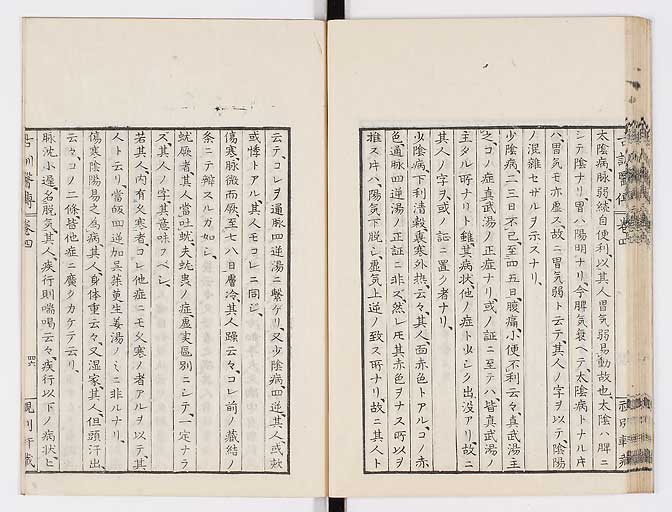 太陰病脉弱続自便利以其人胃気弱易動故也太陰ハ脾ニ
シテ陰ナリ胃ハ陽明ナリ今脾気衰ヘテ太陰病トナルキ
ハ胃気モ亦虚ス故ニ胃気弱ト云テ其人ノ字ヲ以テ陰陽
ノ混雜セザルヲ示スナリ
少陰病二三日不已至四五日腹痛小便不利云々真武湯主
之コノ症真武湯ノ正症ナリ或ノ証ニ至テハ皆真武湯ノ
主タル所ナリト雖其病状他ノ症ト少シク出没アリ故ニ
其人ノ字ヲ或ノ証ニ置ク者ナリ
少陰病下利清穀裏寒外熱云々其人面赤色トアルコノ赤
色通脉四逆湯ノ正証ニ非ズ然レ𪜈其赤色ヲナス所以ヲ
推スキハ陽気下脱シ虚気上逆ノ致ス所ナリ故ニ其人ト
云テコレヲ通脉四逆湯ニ繫ケリ又少陰病四逆其人或欬
或悸トアル其人モコレニ同ジ
傷寒脉微而厥至七八日膚冷其人躁云々コレ前ノ蔵結ノ
条ニテ辨スルガ如シ
蚘厥者其人當吐蚘夫蚘虫ノ症虚実區別ニシテ一定ナラ
ズ其人ノ字其意味フベシ
若其人内有久寒者コレ他症ニモ久寒ノ者アルヲ以テ其
人ト云リ當皈四逆加吴茱萸生姜湯ノミニ非ルナリ
傷寒陰陽易之為病其人身体重云々又湿家其人但頭汗出
云々コノ二條皆他症ニ廣クカケテ云リ
脉沈小遲名脱気其人疾行則喘喝云々疾行以下ノ病状ヒ
卷四
四六